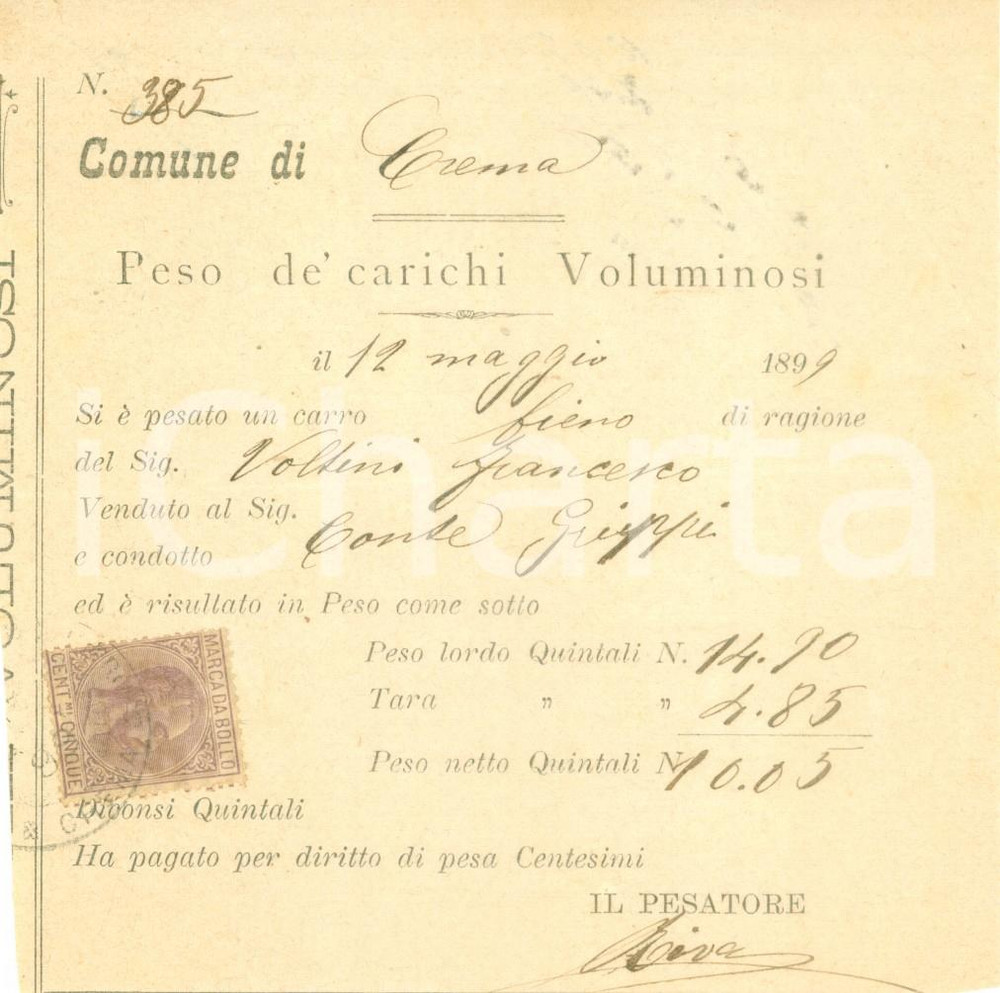 N. 385
Comune di Crema
Peso de' carichi Voluminosi
il 12 maggio 1899
Si è pesato un carro fieno di ragione
del Sig. Voltini Francesco
Venduto al Sig. Conte Grippi
e condotto
ed è risultato in Peso come sotto
Peso lordo Quintali N. 14.90
Tara " " 4.85
Peso netto Quintali N. 10.05
MARCA DA BOLLO
CENT.MI CINQUE
Diconsi Quintali
Ha pagato per diritto di pesa Centesimi
IL PESATORE
Riva
iCharta